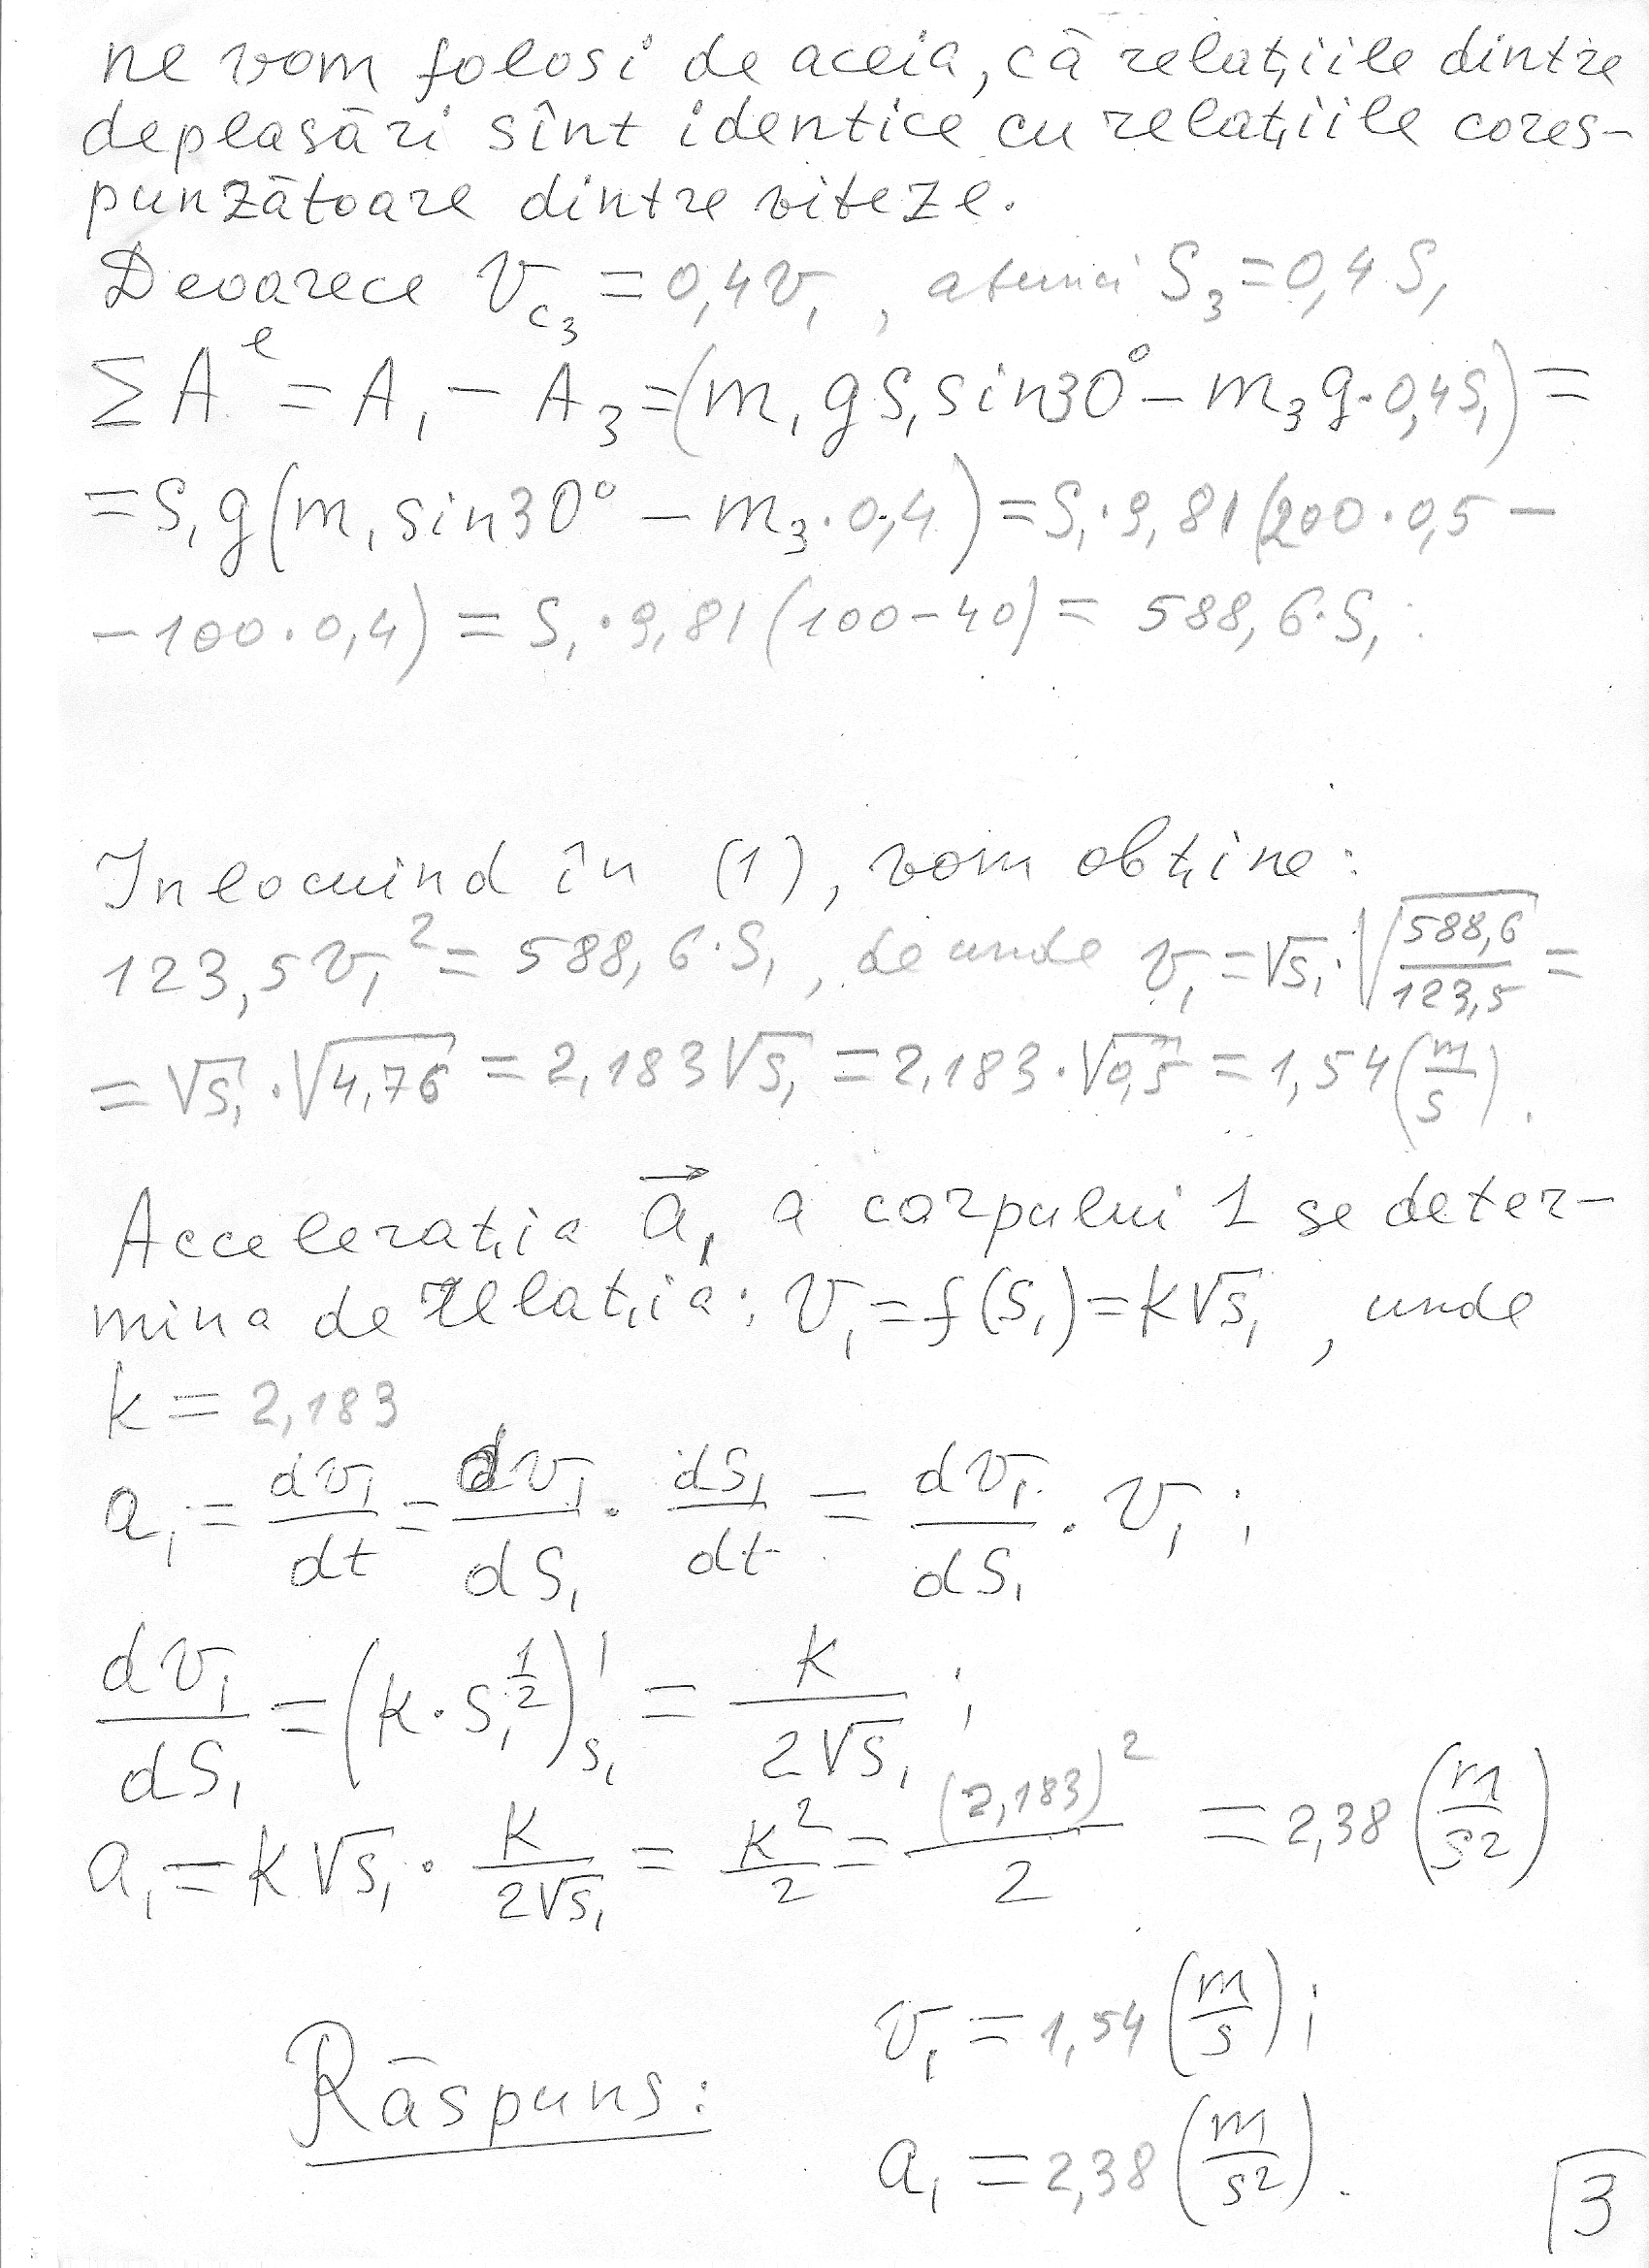 ne vom folosi de aceia, că relațiile dintre
deplasări sînt identice cu relațiile cores-
punzătoare dintre viteze.
Deoarece V_{c_3} = 0,4 v_1, atunci S_3 = 0,4 S_1
ΣA^e = A_1 - A_3 = (m_1 g S_1 sin30° - m_3 g · 0,4 S_1) =
= S_1 g (m_1 sin30° - m_3 · 0,4) = S_1 · 9,81 (200 · 0,5 -
- 100 · 0,4) = S_1 · 9,81 (100 - 40) = 588,6 · S_1.
Inlocuind în (1), vom obține:
123,5 v_1^2 = 588,6 · S_1, de unde v_1 = √S_1 · √(588,6/123,5) =
= √S_1 · √4,76 = 2,183 √S_1 = 2,183 · √0,5 = 1,54 (m/s).
Accelerația a⃗_1 a corpului 1 se deter-
mina de relația: V_1 = f(S_1) = k√S_1, unde
k = 2,183
a_1 = dv_1/dt = dv_1/dS_1 · dS_1/dt = dv_1/dS_1 · v_1;
dv_1/dS_1 = (k · S_1^{1/2})'_{S_1} = k/(2√S_1);
a_1 = k√S_1 · k/(2√S_1) = k^2/2 = (2,183)^2/2 = 2,38 (m/s^2)
v_1 = 1,54 (m/s);
Răspuns:
a_1 = 2,38 (m/s^2).
3